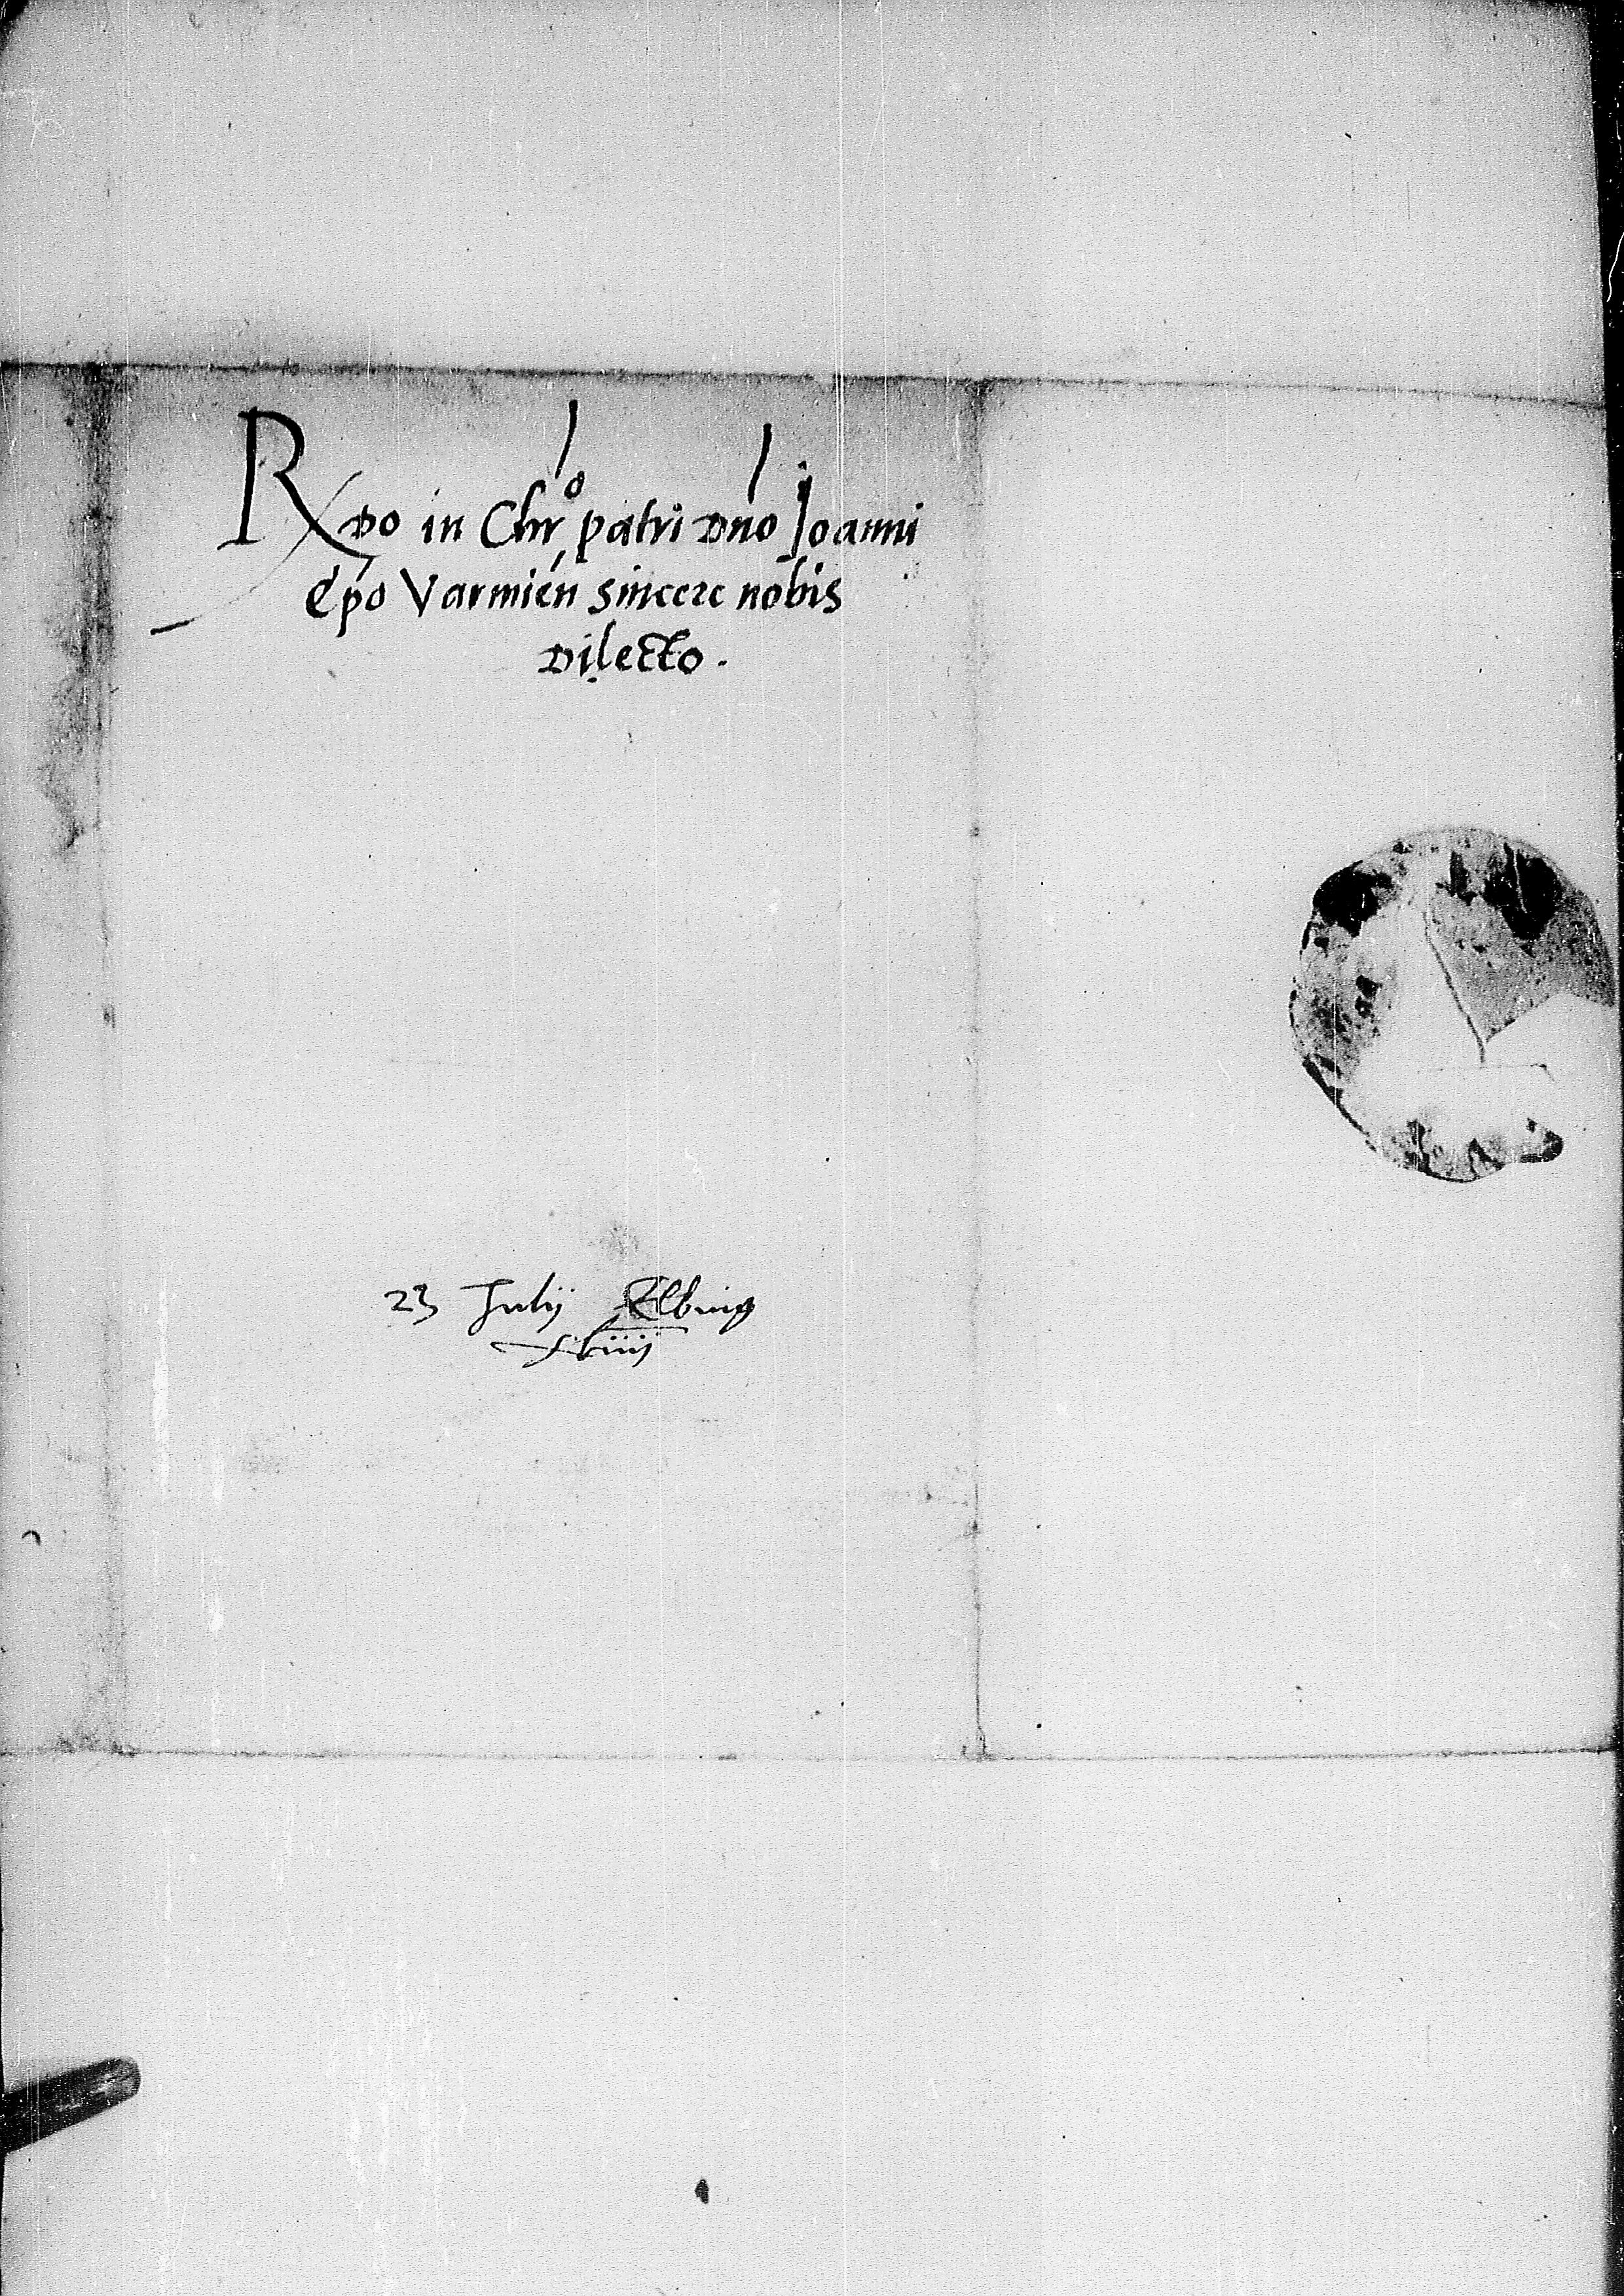 Rdo in Chro patri Dno Joanni
Epo Varmien sincere nobis
Dilecto.
23 Julij Elbing
xliiij